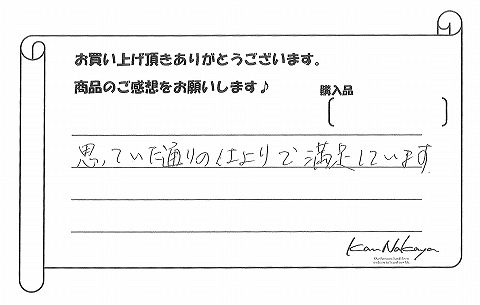 お買い上げ頂きありがとうございます。
商品のご感想をお願いします♪
購入品
思っていた通りの仕上りで満足しています
Kan Nakaya